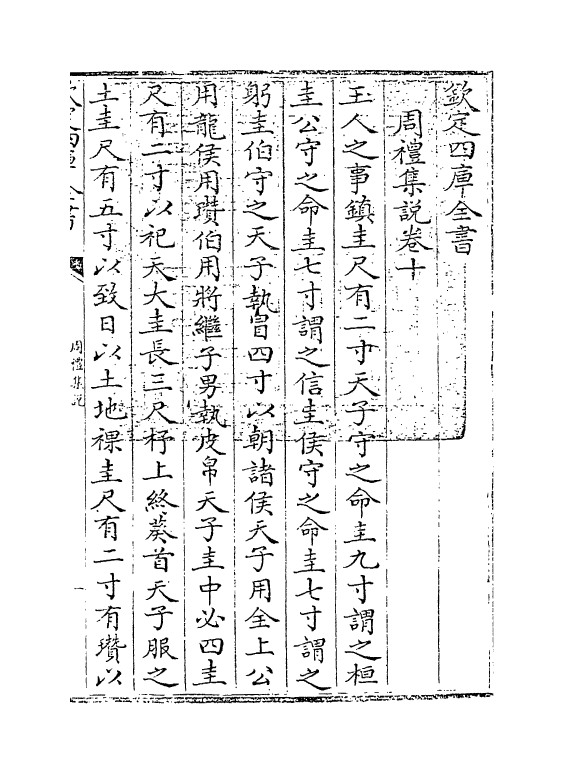 欽定四庫全書
周禮集說卷十
玉人之事鎮圭尺有二寸天子守之命圭九寸謂之桓
圭公守之命圭七寸謂之信圭侯守之命圭七寸謂之
躬圭伯守之天子執冒四寸以朝諸侯天子用全上公
用龍侯用瓚伯用將繼子男執皮帛天子圭中必四圭
尺有二寸以祀天大圭長三尺杼上終葵首天子服之
土圭尺有五寸以致日以土地祼圭尺有二寸有瓚以
周禮集說
一